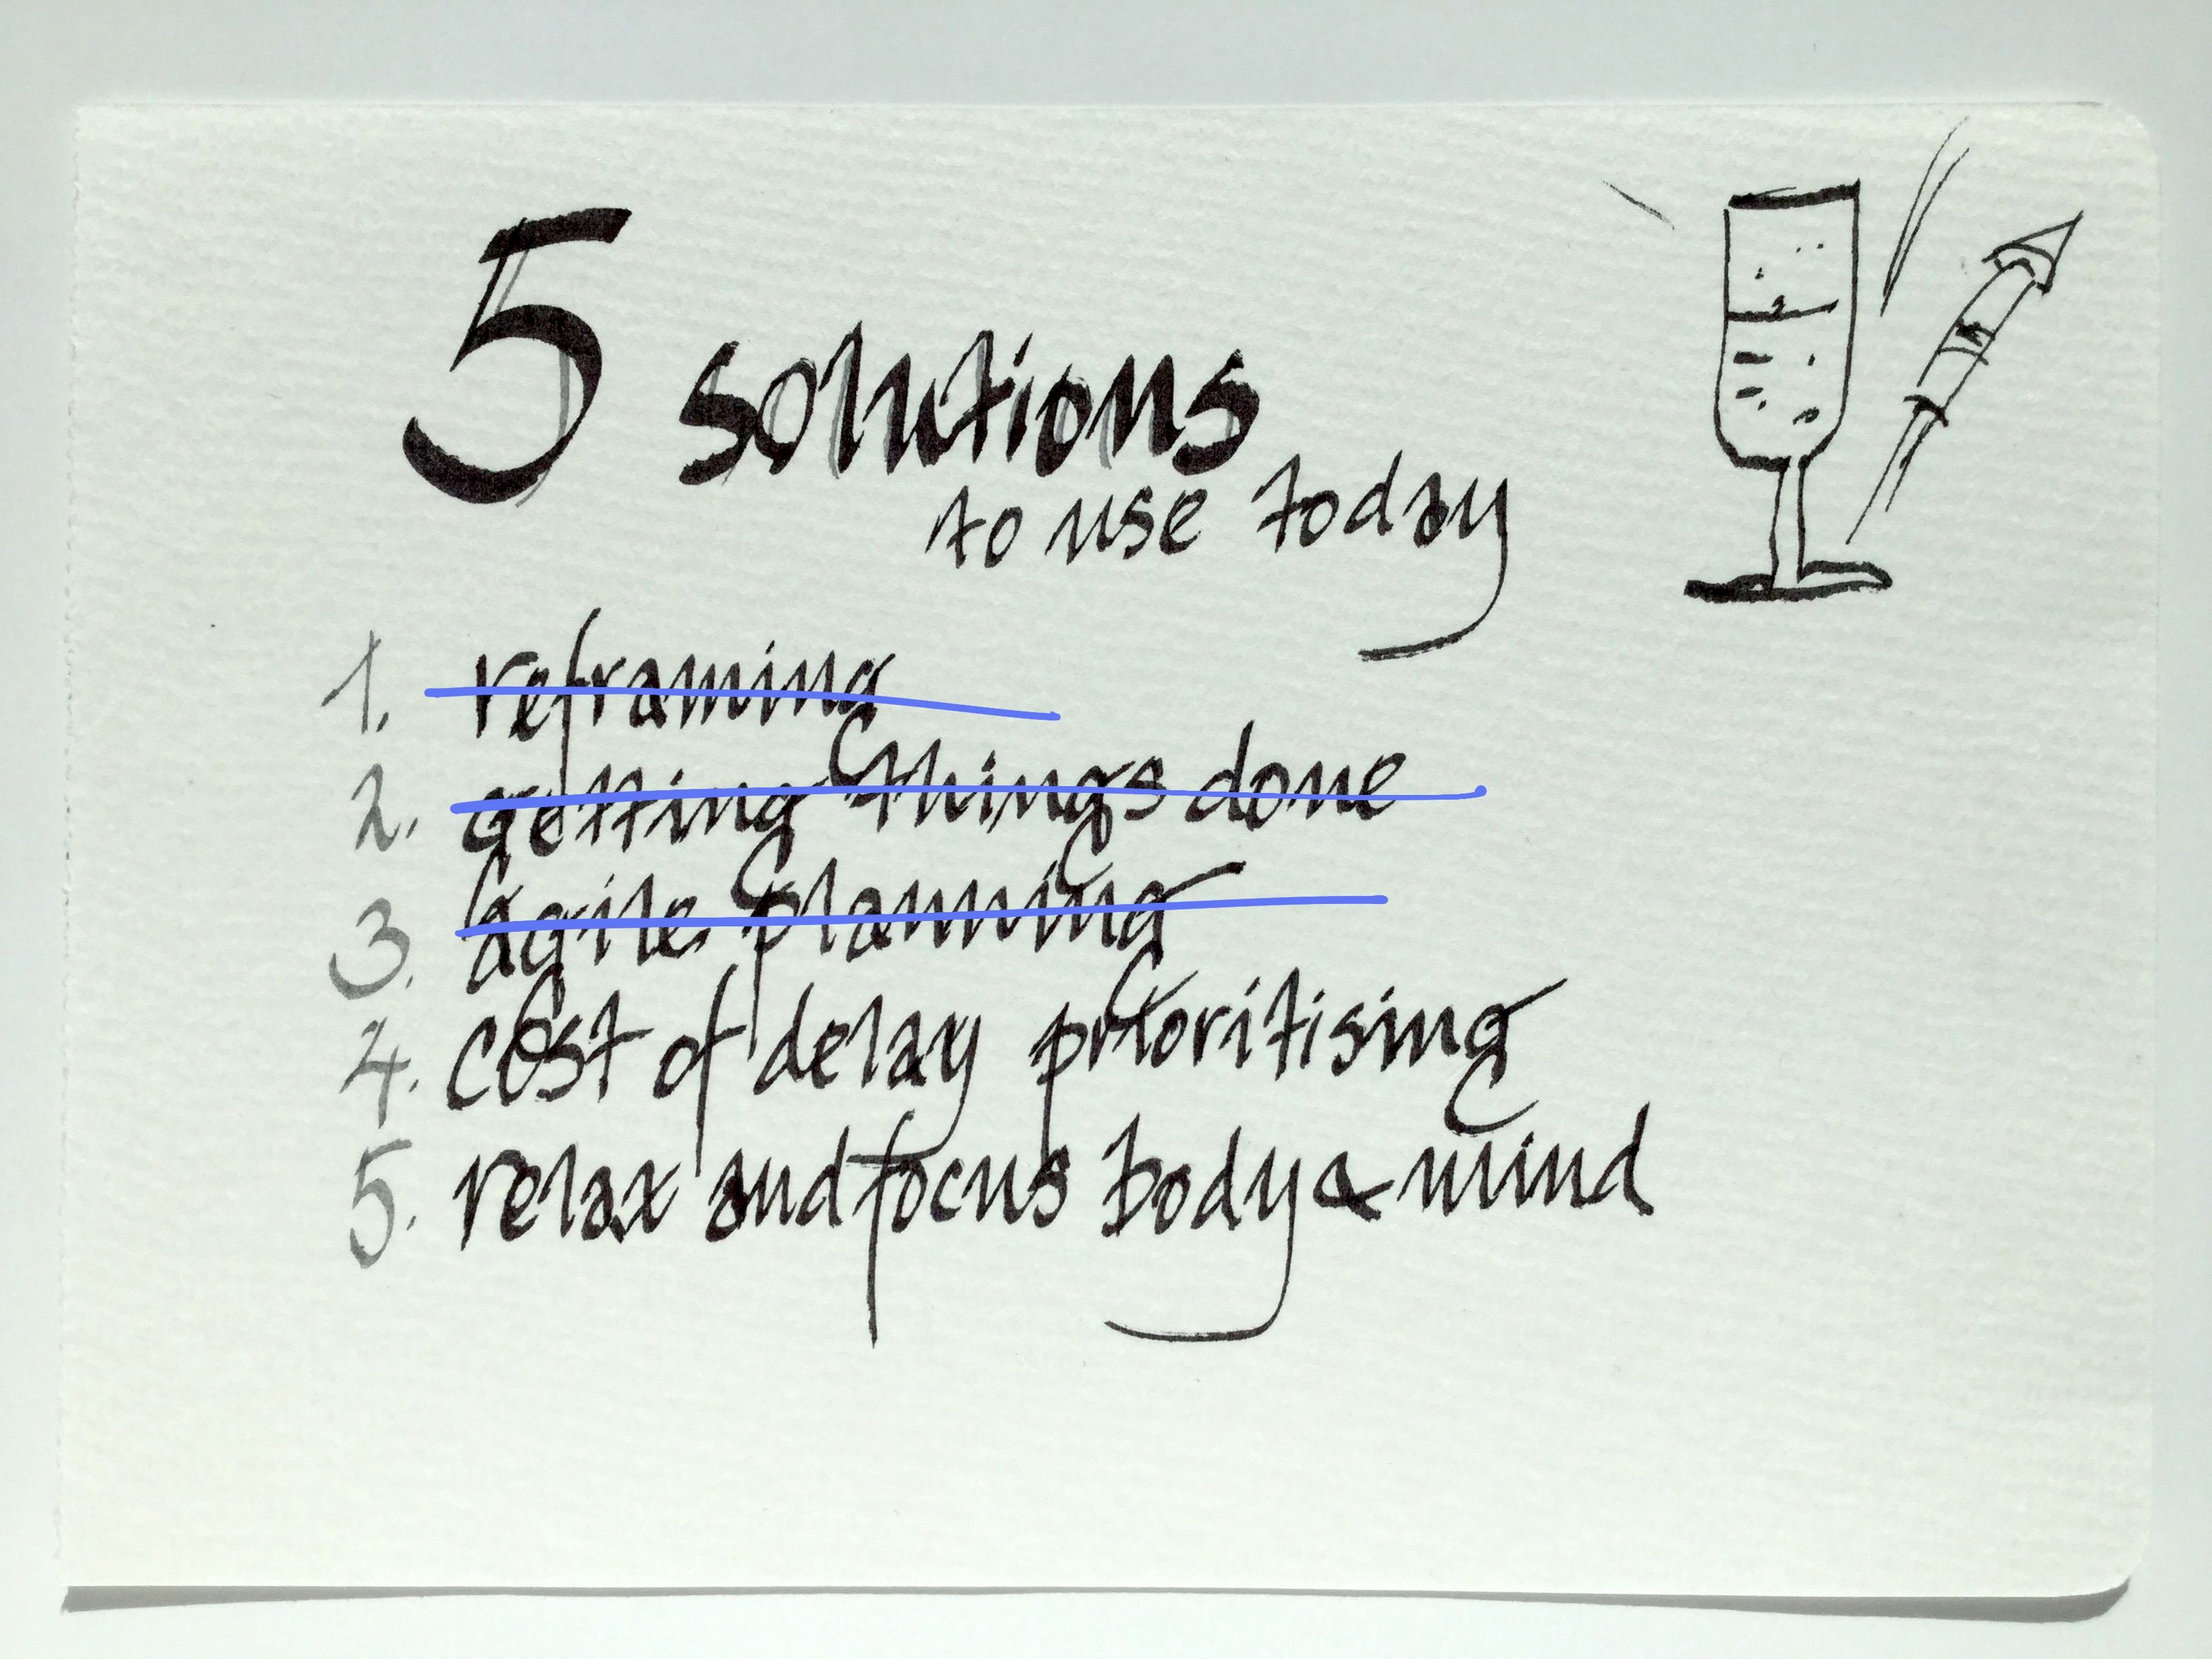 5 solutions
to use today
1. reframing
2. getting things done
3. agile planning
4. cost of delay prioritising
5. relax and focus body & mind